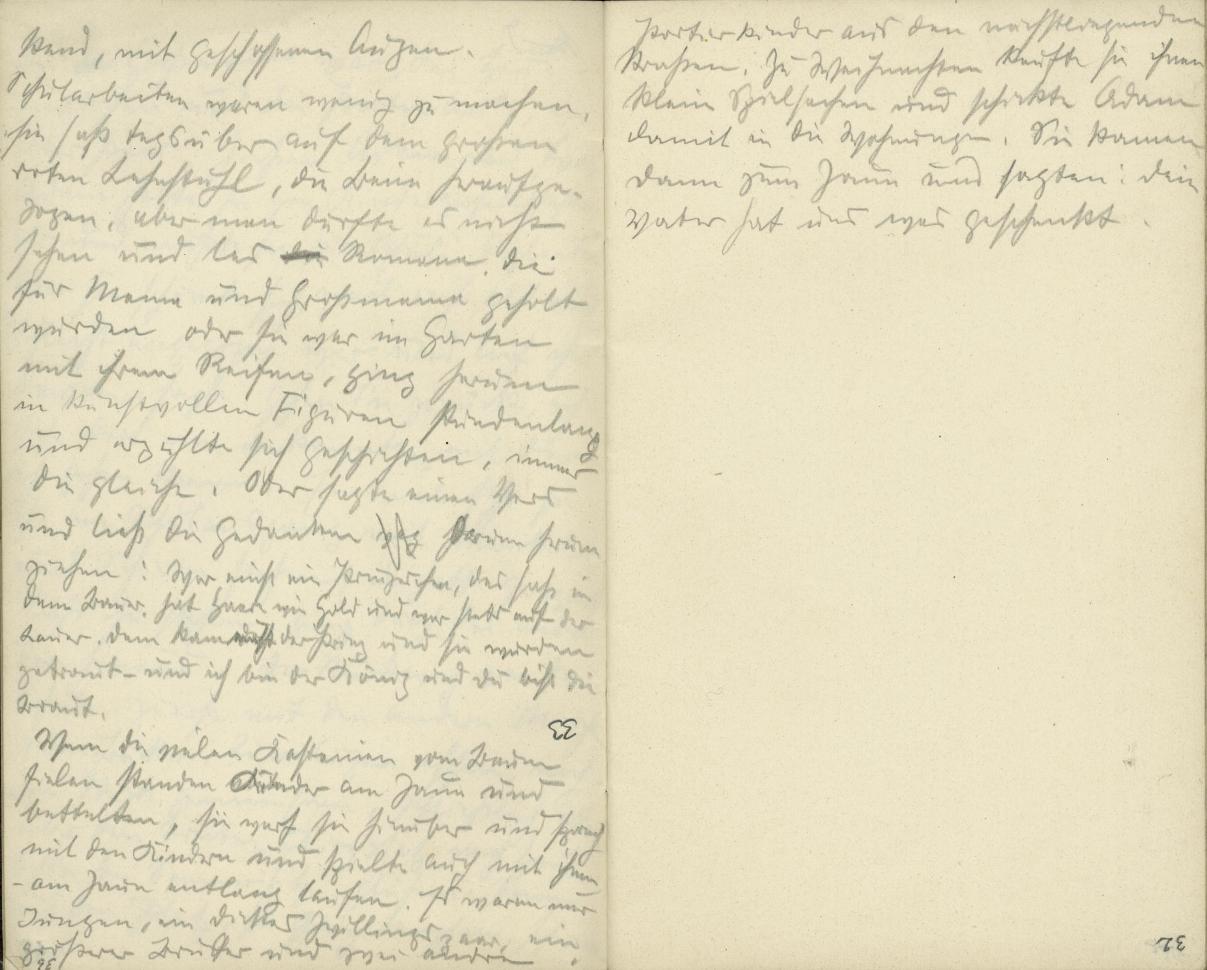 Wand, mit geschlossenen Augen.
Schularbeiten waren wenig zu machen,
sie saß tagsüber auf dem grossen
roten Lehnstuhl, die Beine heraufge-
zogen, aber man durfte es nicht
sehen und las die Romane, die
für Mama und Großmama geholt
wurden oder sie war im Garten
mit ihrem Reifen, ging herum
in kunstvollen Figuren stundenlang
und erzählte sich Geschichten, immer
die gleiche. Oder sagte einen Vers
und ließ die Gedanken darum herum
ziehen: War einst ein Prinzesschen, das saß in
dem Bauer, hat Haare wie Gold und war stets auf der
Lauer. Dem kam der Prinz und sie wurden
getraut – und ich bin der König und du bist die
Braut.
33
Wenn die vielen Kastanien vom Baum
fielen standen Kinder am Zaun und
bettelten, sie warf sie hinüber und sprach
mit den Kindern und spielte auch mit ihnen
– am Zaun entlang laufen. Es waren nur
Jungen, ein dickes Zwillingspaar, ein
größerer Bruder und zwei andre
36
Portierkinder aus den nächstliegenden
Strassen. Zu Weihnachten kaufte sie ihnen
kleine Spielsachen und schickte Adam
damit in die Wohnungen. Sie kamen
dann zum Zaun und sagten: dein
Vater hat uns was geschenkt.
32